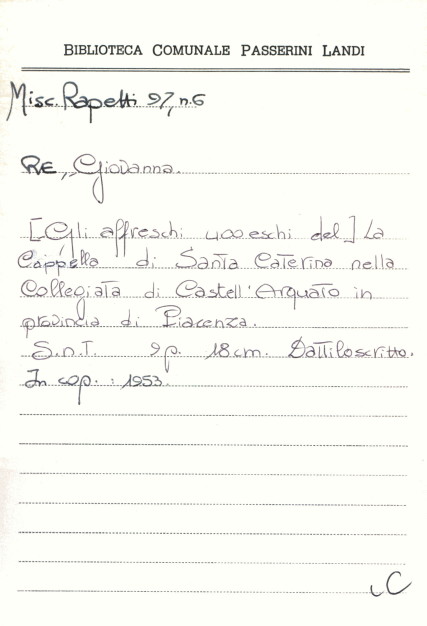 BIBLIOTECA COMUNALE PASSERINI LANDI
Misc. Rapetti 97, n.6
RE, Giovanna.
[Gli affreschi 400eschi del] La
Cappella di Santa Caterina nella
Collegiata di Castell'Arquato in
provincia di Piacenza.
S.n.T. 9p. 18cm. Dattiloscritto.
In cop.: 1953.